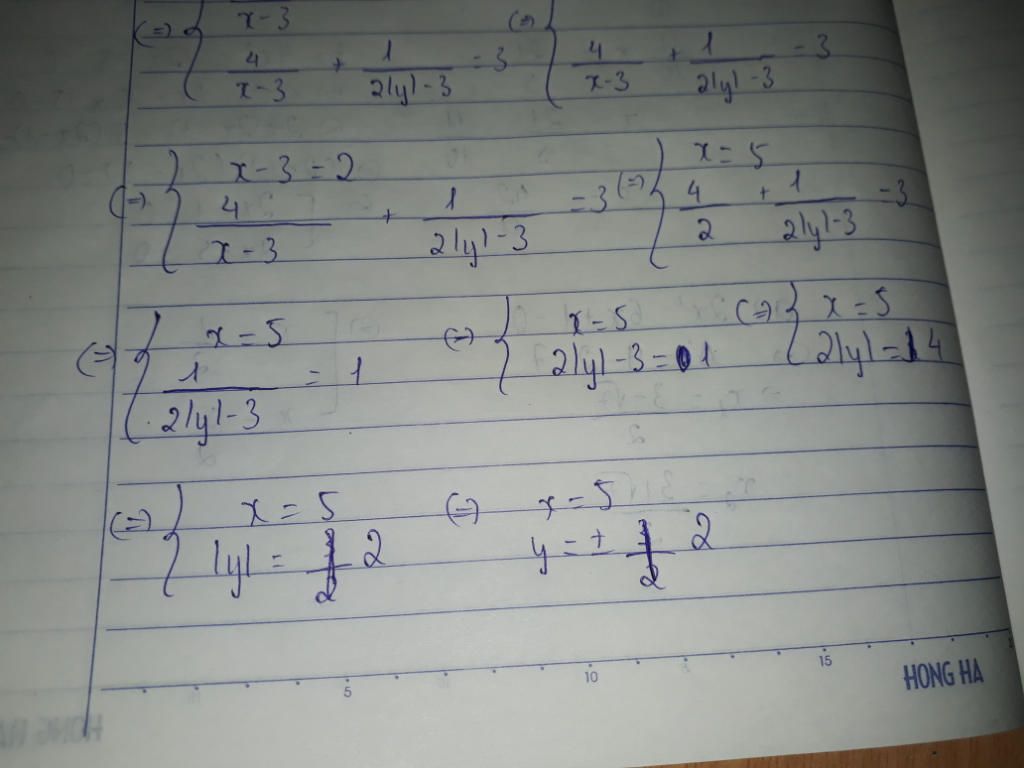 (=) { x-3
4/(x-3) + 1/(2|y|-3) = 3 (=) { 4/(x-3) + 1/(2|y|-3) = 3
(=) { x-3 = 2
4/(x-3) + 1/(2|y|-3) = 3 (=) { x = 5
4/2 + 1/(2|y|-3) = 3
(=) { x = 5
1/(2|y|-3) = 1 (=) { x = 5
2|y|-3 = 1 (=) { x = 5
2|y| = 4
(=) { x = 5
|y| = 2 (=) x = 5
y = ± 2
5 10 15
HONG HA